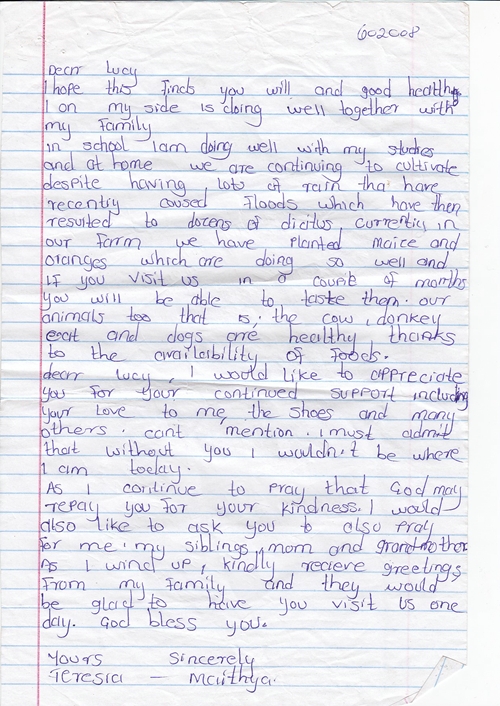 602008
Dear Lucy
I hope this finds you will and good healthy.
I on my side is doing well together with
my family
in school Iam doing well with my studies
and at home we are continuing to cultivate
despite having lots of rain tha have
recently coused floods which have then
resulted to docens of dicitus currently in
our farm we have planted maice and
oranges which are doing so well and
If you visit us in a couple of months
you will be able to taste them. our
animals too that is, the cow, donkey
and dogs are healthy thanks
to the availability of foods.
dear Lucy, I would like to appreciate
you for your continued support including
your love to me, the shoes and many
others. cant mention. I must admit
that without you I wouldn't be where
I am today.
As I continue to pray that God may
repay you for your kindness. I would
also like to ask you to also pray
for me, my siblings, mom and grandmother
As I wind up, kindly recieve greetings
From my family and they would
be glad to have you visit us one
day. God bless you.
Yours Sincerely
Teresia - Maithya.